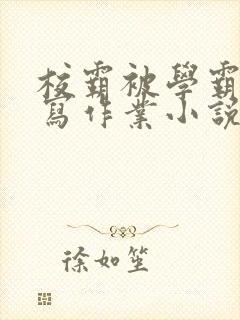 校霸被學霸
寫作業小說
徐如笙